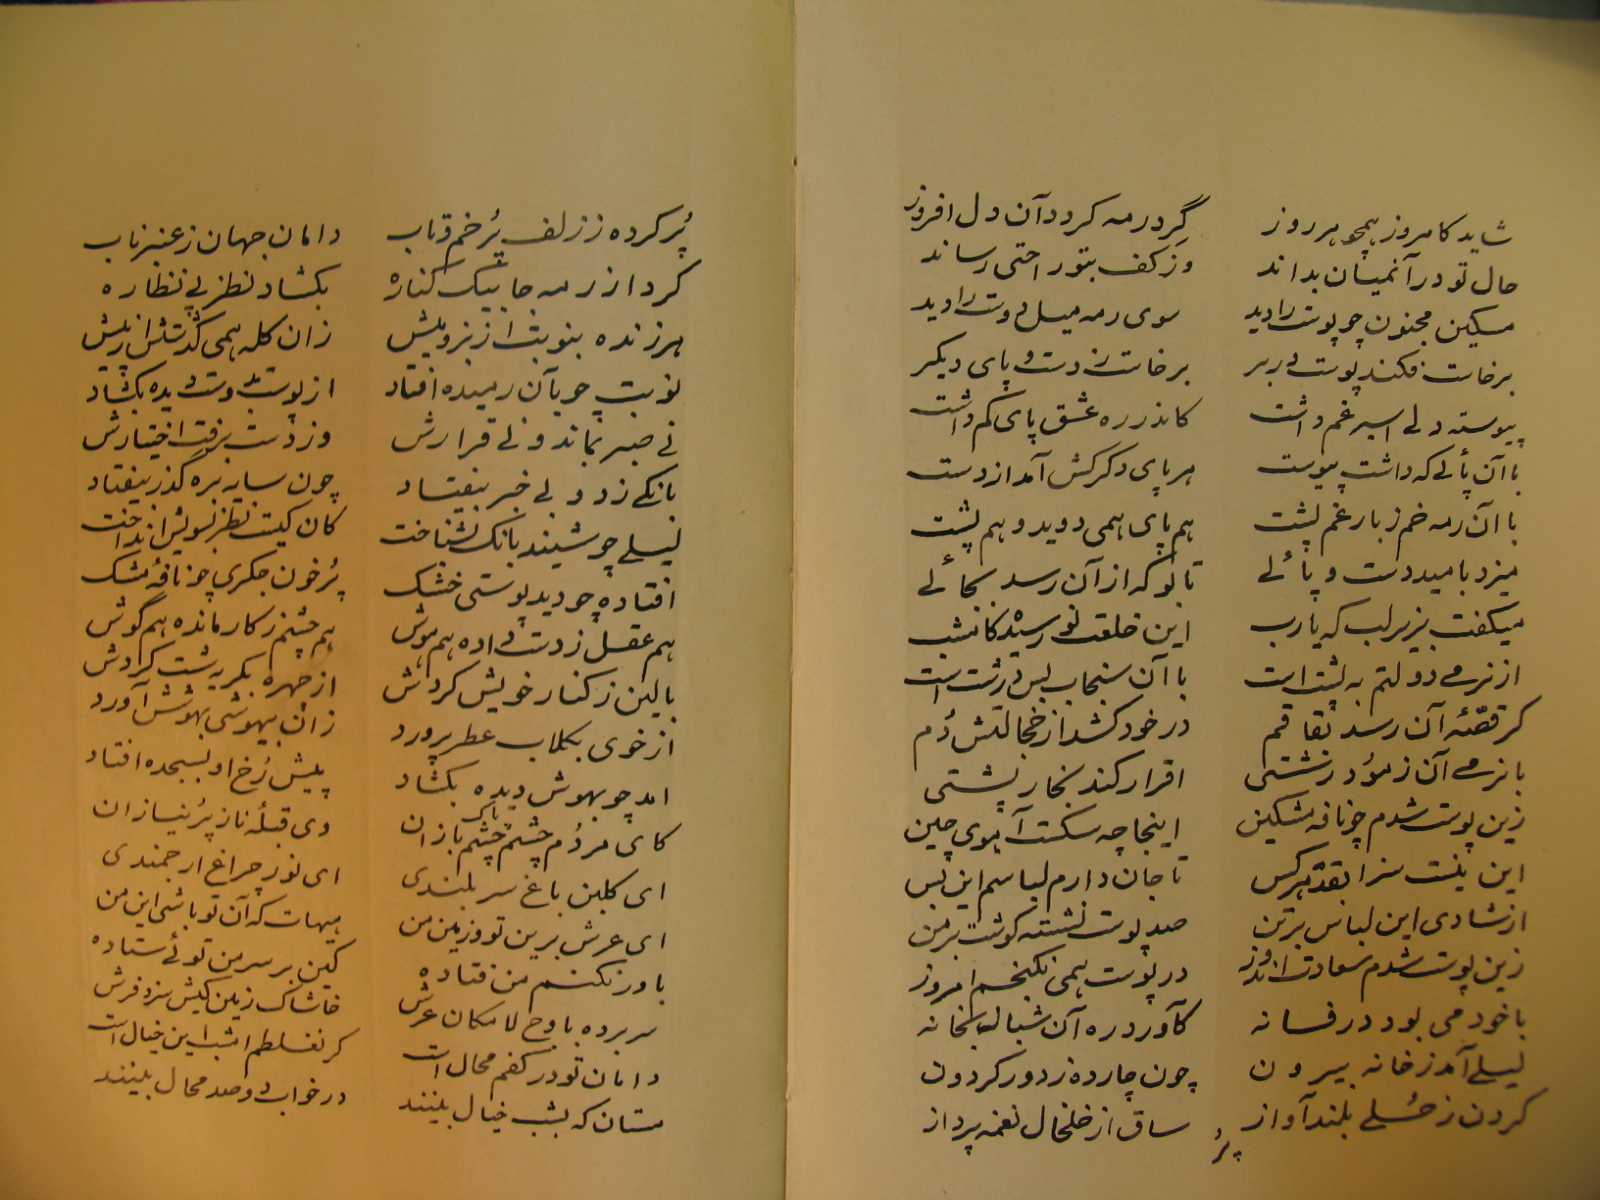 شاید کامروز همچو هر روز گرد رمه گردد آن دل افروز
حال تو در آنمیان بداند وز کف بتو راحتی رساند
مسکین مجنون چو پوست را دید سوی رمه میل دوست را دید
برخاست فکند پوست در بر برخاست ز دست و پای دیگر
پیوسته دلے اسیر غم داشت کاندر ره عشق پای کم داشت
با آن پائے که داشت پیوست هر پای دگرکش آمد از دست
با آن رمه خم ز بار غم پشت هم پای همی دوید و هم پشت
میزد بامید دست و پائے تا بو که از آن رسد بجائے
میگفت بزیر لب که یارب این خلعت نو رسید کامشب
از نرمے دولتم به پشت است با آن سنجاب بس درشت است
گر قصّهٔ آن رسد بقاقم در خود کشد از خجالتش دُم
با نرمے آن ز موُ درشتی اقرار کند بخارپشتی
زین پوست شدم چو نافه مشکین اینجا چه سگست آهوی چین
این نیست سزا بقدّ هر کس تا جان دارم لباسم این بس
از شادی این لباس بر تن صد پوست نشسته گوشت بر من
زین پوست شدم سعادت اندوز در پوست همی نگنجم امروز
با خود می بود در فسانه کآورد ره آن شبان بخانه
لیلے آمد ز خانه بیرون چون چارده ز دور گردون
کردن ز حُلے بلند آواز ساق از خلخال نغمه پرداز
پُر
پُر کرده ز زلف پُر خم و تاب دامان جهان ز عنبر ناب
کرد از رمه جا بیک کناره بگشاد نظر پے نظاره
هر زنده بنوبت از بز و میش زان گله همی گذشتش از پیش
نوبت چو بآن رمیده افتاد از پوست بدوست دیده بگشاد
نے صبر نماند و نے قرارش وز دست برفت اختیارش
بانگے زد و بے خبر بیفتاد چون سایه بره گذر بیفتاد
لیلے چو شنید بانگ بشناخت کان کیست نظر بسویش انداخت
افتاده چو دید پوستی خشک پُر خون جگری چو نافهٔ مشک
هم عقل ز دست داده هم هوش هم چشم ز کار مانده هم گوش
بالین ز کنار خویش کردش از چهره بگریه شست گردش
از خوی بگلاب عطرپرورد زان بیهوشی بهوشش آورد
آمد چو بهوش دیده بگشاد پیش رُخ او بسجده افتاد
کای مردُم چشم چشم پاک بازان وی قبلهٔ ناز پُر نیازان
ای گلبن باغ سر بلندی ای نور چراغ ارجمندی
ای عرش برین تو و زمین من هیهات که آن تو باشی این من
باور نکنم من فتاده کین بر سر من توئے ستاده
سر برده باوج لامکان عرش خاشاک زمین کیش سزد فرش
دامان تو در کفم محال است گر نغلطم امشب این خیال است
مستان که بشب خیال بینند در خواب دو صد محال بینند